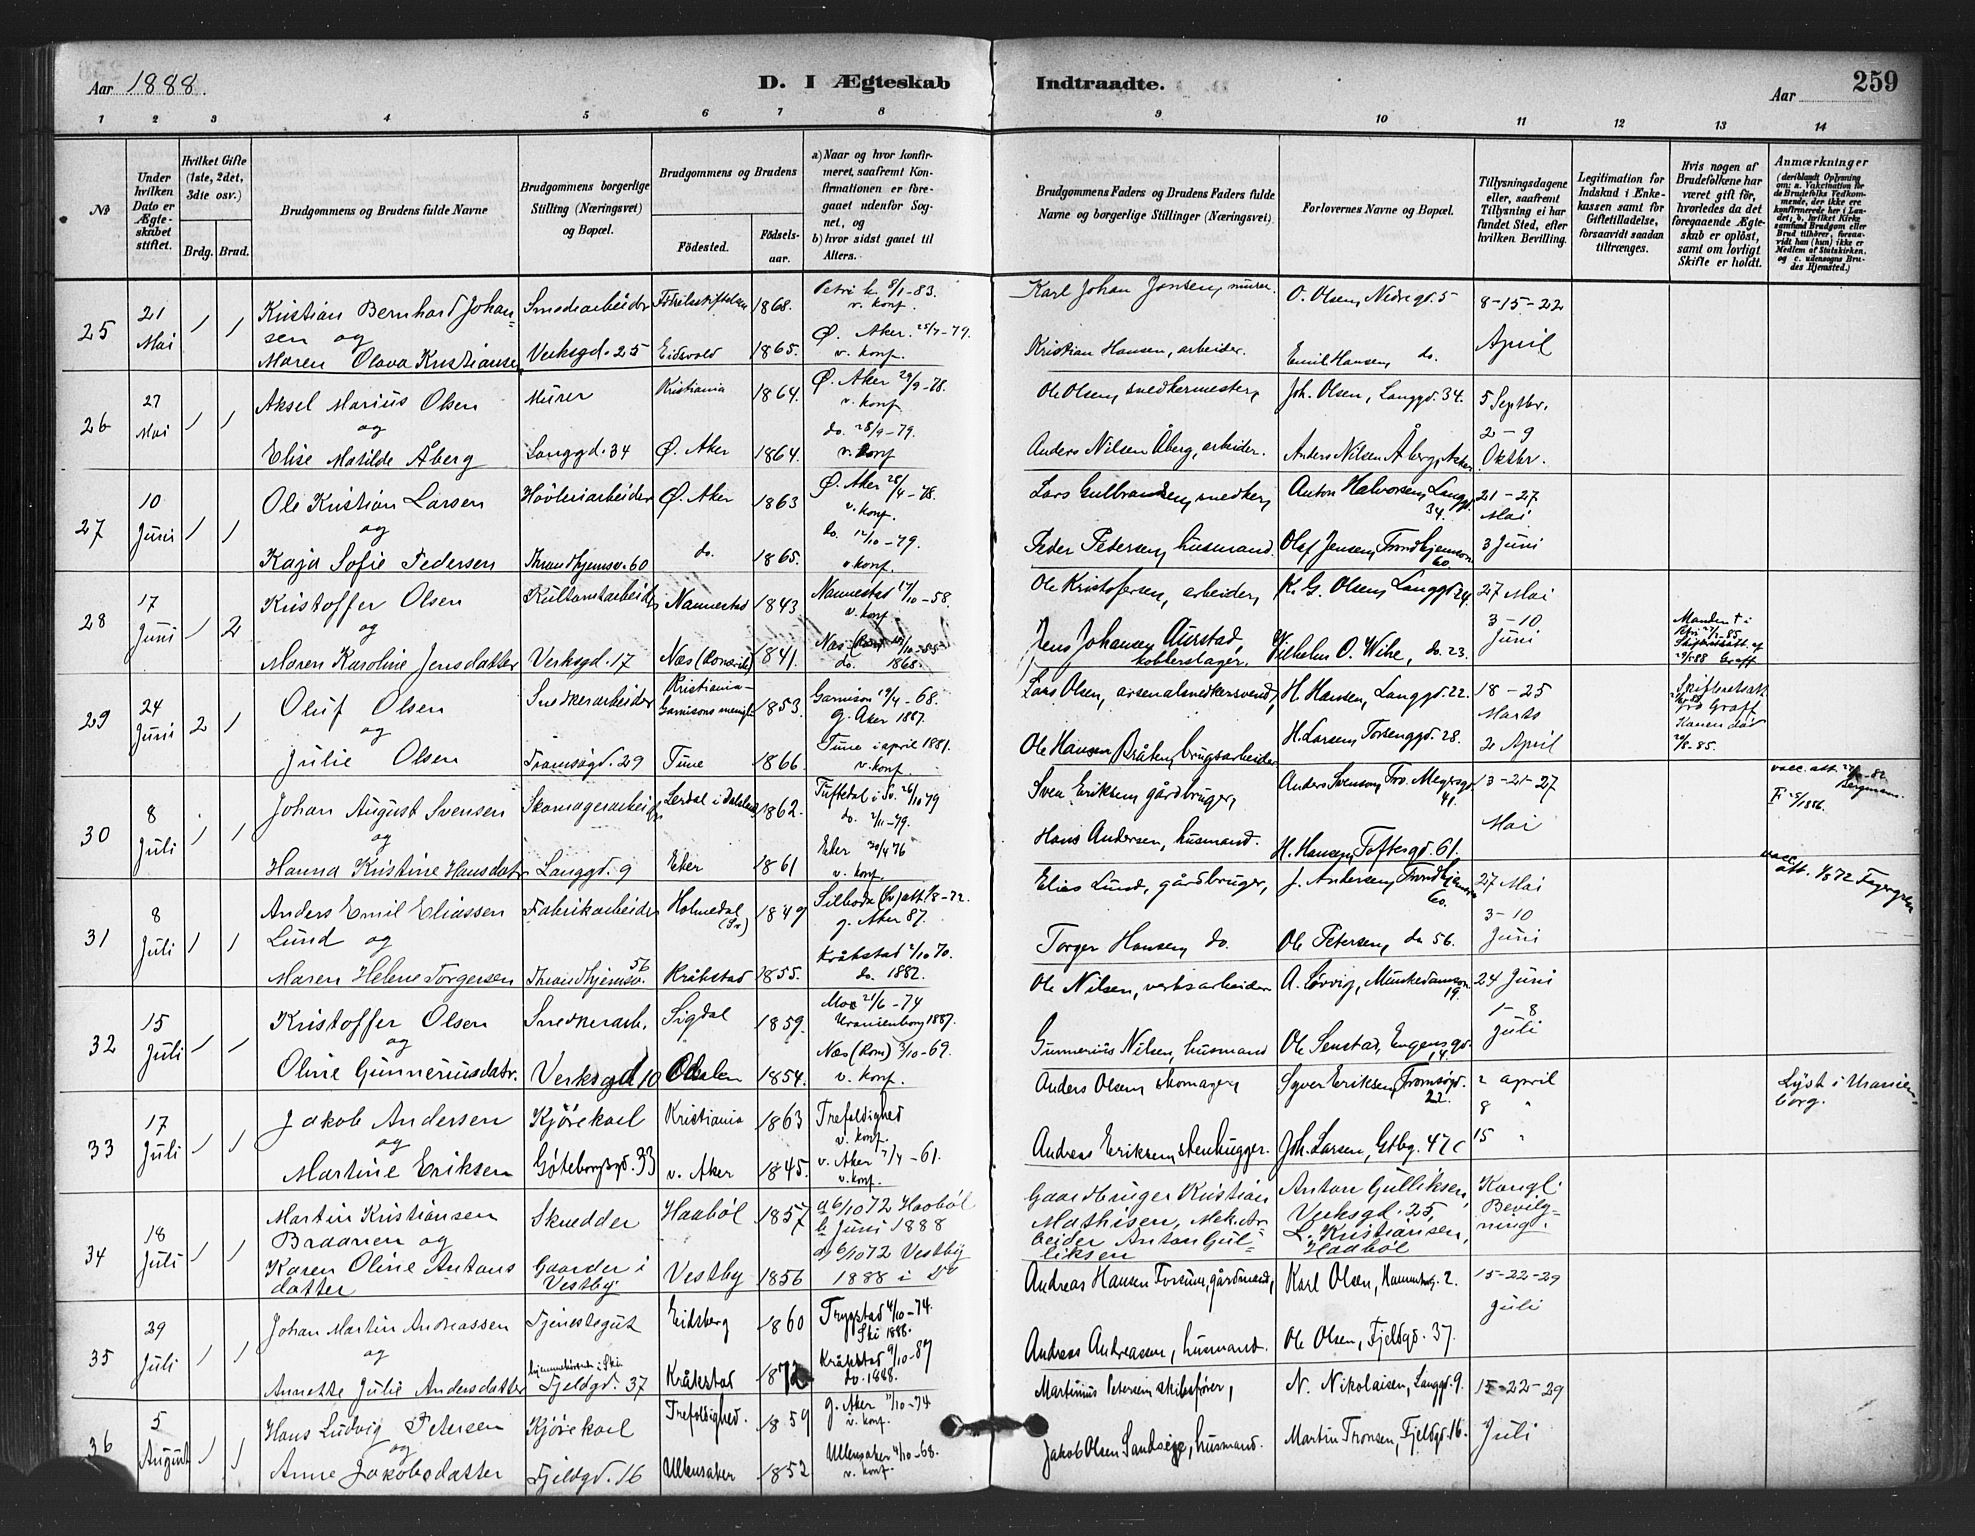 Aar 1888. D. I Ægteskab Indtraadte. Aar 259
1 2 3 4 5 6 7 8 9 10 11 12 13 14
No
Under hvilken Dato er Ægteskabet stiftet.
Hvilket Gifte (1ste, 2det, 3die osv.)
Brdg. Brud.
Brudgommens og Brudens fulde Navne
Brudgommens borgerlige Stilling (Næringsvei) og Bopæl.
Brudgommens og Brudens
Fødested.
Fødselsaar.
a) Naar og hvor konfirmeret, saafremt Konfirmationen er foregaaet udenfor Sognet, og
b) hvor sidst gaaet til Alters.
Brudgommens Faders og Brudens Faders fulde Navne og borgerlige Stillinger (Næringsvei).
Forlovernes Navne og Bopæl.
Tillysningsdagene eller, saafremt Tillysning ei har fundet Sted, efter hvilken Bevilling.
Legitimation for Indskud i Enkekassen samt for Giftetilladelse, forsaavidt saadan tiltrænges.
Hvis nogen af Brudefolkene har været gift før, hvorledes da det foregaaende Ægteskab er opløst, samt om lovligt Skifte er holdt.
Anmærkninger (deriblandt Oplysning om: a. Vakcination for de Brudefolks Vedkommende, der ikke ere konfirmerede her i Landet; b, hvilket Kirkesamfund Brudgom eller Brud tilhører, forsaavidt han (hun) ikke er Medlem af Statskirken, og c. udensogns Brudes Hjemsted.)
25 21 Mai 1 1 Kristian Bernhard Johansen og Smediearbeider 1868. Petri k. 8/1-83. v. konf. Karl Johan Jonsen, murer. O. Olsen, Nedregd. 5 8-15-22 April
Maren Olava Kristiansen Verksgd. 25 Eidsvold 1865. Ø. Aker. v. konf. Kristian Hansen, arbeider. Emil Hansen, do.
26 27 Mai 1 1 Aksel Marius Olsen og Murer Kristiania 1864. Ø. Aker 29/9-78. v. konf. Ole Olsen, snedkermester, Joh. Olsen, Langgd. 34. 5 Septbr. 2-9 Oktbr.
Elise Matilde Åberg Langgd. 34 Ø. Aker 1864. do. 28/9-79. v. konf Anders Nilsen Åberg, arbeider. Anders Nilsen Åberg, Aker
27 10 Juni 1 1 Ole Kristian Larsen og Høvleriarbeider Ø. Aker 1863 Ø. Aker v. konf. Lars Gulbrandsen, snedker, Anton Halvorsen, Langgd. 34. 21-27 Mai 3 Juni
Kaja Sofie Pedersen Throndhjemsv. 60 do. 1865. do. 12/10-79. v. konf. Peder Petersen, husmand. Olaf Jensen, Trondhjemsvn 60
28 17 Juni 1 2 Kristoffer Olsen og Nannestad 1843 Nannestad 17/10-58. v. konf Ole Kristofersen, arbeider, K. G. Olsen, Langgd 24. 27 Mai 3-10 Juni
Maren Karoline Jensdatter Verksgd. 17 Næs (Romerike) 1841. Næs do. 1868. Jens Johansen Aurstad, kobberslager. Vilhelm O. Wihe, do. 23. Manden † i
29 24 Juni 2 1 Oluf Olsen og Snedkerarbeider Kristiania Garnisons menigh 1853. Garnison 19/4-68. g. Aker 1887. Lars Olsen, arsenalsnedkersvend, H. Hansen, Langgd. 22. 18-25 Marts 2 April Skifteretsatt. fra Graff Konen død 85.
Julie Olsen Tromsøgd. 29 Tune 1866. Tune i april 1881. v. konf. Ole Hansen Bråten, brugsarbeider H. Larsen, Torsenggd. 28.
30 8 Juli 1 1 Johan August Svensen og Skomagerarbeider Lerdal i Dalsland 1862. Tuftedal i Sv. 26/10 79 do. 2/11-79. Sven Eriksen gårdbruger, Anders Svenson, Trv. Meyersgd 41. 13-21-27 Mai vacc. att. Bergmann.
Hanna Kristine Hansdatr Langgd. 9 Eker 1861 Eker 30/4 76 v. konf. Hans Andersen, husmand. H. Hansen, Toftesgd. 61.
31 8 Juli 1 1 Anders Emil Eliassen Lund og Fabrikarbeider Holmedal (Sv) 1849 Silbodal (Sv) att. g. Aker 87. Elias Lund, gårdbruger, J. Andersen, Trondhjemsvn 60. 27 Mai 3-10 Juni vacc. att. 1/8 72 Fagergren
Maren Helene Torgersen Throndhjemsv. 56 Kråkstad 1855. Kråkstad 2/10 70. do. 1882. Torger Hansen, do. Ole Petersen, do 56.
32 15 Juli 1 1 Kristoffer Olsen og Snedkerarb. Sigdal 1859. 21/6-74 Uranienborg 1887. Ole Nilsen, verksarbeider A. Løvvig, Munkedamsvn. 19. 24 Juni 1-8 Juli
Oline Gunneriusdatr. Verksgd 10 Odalen 1854. Næs (Rom) 3/10-69. v. konf. Gunnerius Nilsen, husmand Ole Senstad, Engensgd. 14.
33 17 Juli 1 1 Jakob Andersen og Kjørekarl Kristiania 1863 Trefoldighed v. konf. Anders Olsen, skomager, Syver Eriksen, Tromsøgd. 22. 2 april 8 " 15 " Lyst i Uranienborg.
Martine Eriksen Göteborgsgd. 33 v. Aker 1845. v. Aker 7/4-61. v. konf. Andreas Eriksen, stenhugger. Joh. Larsen, Gtbg. 47 c
34 18 Juli 1 1 Martin Kristiansen Braanen og Skrædder Haabøl 1857 a 6/10 72 Haabøl b Juni 1888 Gaardbruger Kristian Mathisen, Mek. Arbeider Anton Gulliksen Anton Gulliksen, Verksgd. 25, L. Kristiansen, Haabøl Kongl. Bevilgning.
Karen Oline Antonsdatter Gaarder i Vestby Vestby 1856 a 6/10 72 Vestby 1888 i Do
35 29 Juli 1 1 Johan Martin Andreassen og Tjenestegut Eidsberg 1860 Trygstad 4/10-74. Ski 1888. Andreas Hansen Forsum, gårdmand, Karl Olsen, 2. 15-22-29 Juli
Annette Julie Andersdatter hjemmehørende i Ski Fjeldgd. 37 Kråkstad 1872 Kråkstad 9/10-87 do. 1888. Andreas Andreasen, husmand. Ole Olsen, Fjeldgd. 37.
36 5 August 1 1 Hans Ludvig Petersen og Kjørekarl Trefoldighed. 1859 g. Aker 11/10-74 v. konf. Martinius Petersen skibsfører, N. Nikolaisen, Langgd. 9. 15-22-29 Juli
Anne Jakobsdatter Fjeldgd. 16 Ullensaker 1852 Ullensaker 4/10-68. v. konf. Jakob Olsen Sandseje, husmand. Martin Tronsen, Fjeldgd. 16.